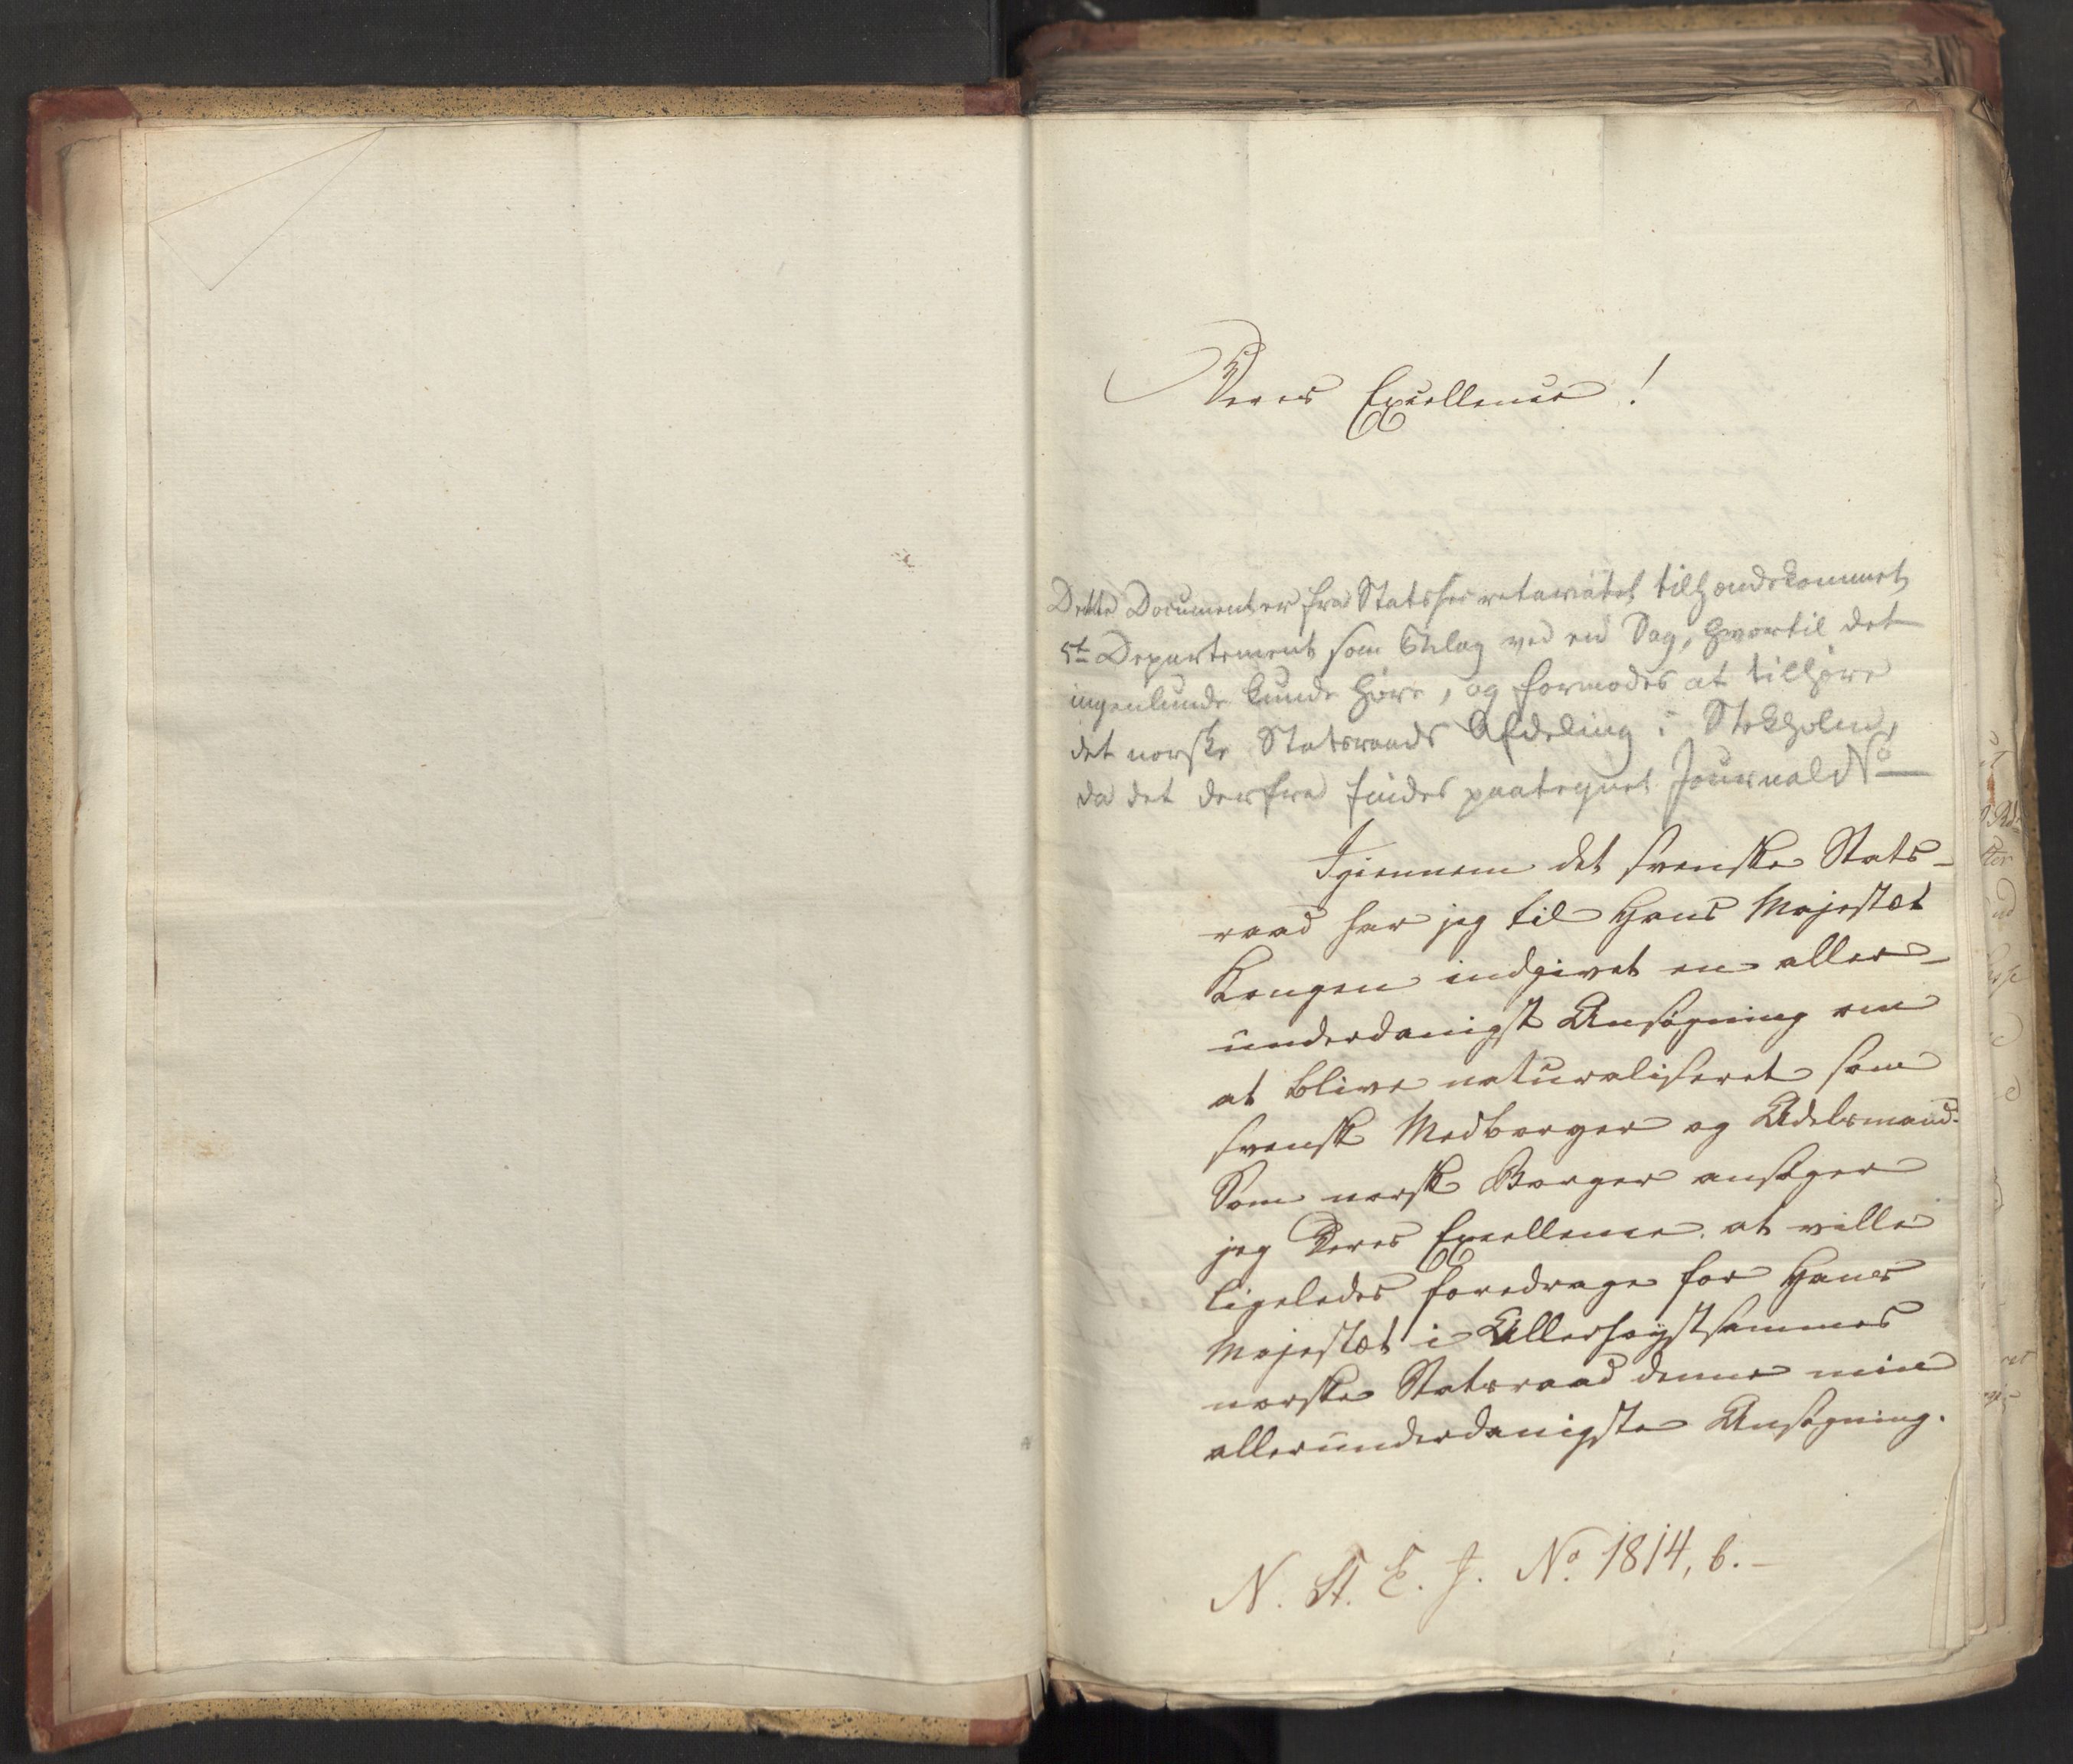 Deres Excellence!
Dette Document er fra Statssecretariatet tilhændekommet
5te Departement som Bilag ved en Sag, hvortil det
ingenlunde kunde høre, og formodes at tilhøre
det norske Statsraads Afdeling i Stokholm,
da det derfra findes paategnet Journal No
Igiennem det svenske Stats-
raad har jeg til Hans Majestæt
Kongen indgivet en aller-
underdanigst Ansøgning om
at blive naturaliseret som
svensk Medborger og Adelsmand.
Som norsk Borger ansøger
jeg Deres Excellence at ville
ligeledes foredrage for Hans
Majestæt i Allerhøystsammes
norske Statsraad denne min
allerunderdanigste Ansøgning.
N. St. E. J. No. 1814, b.-